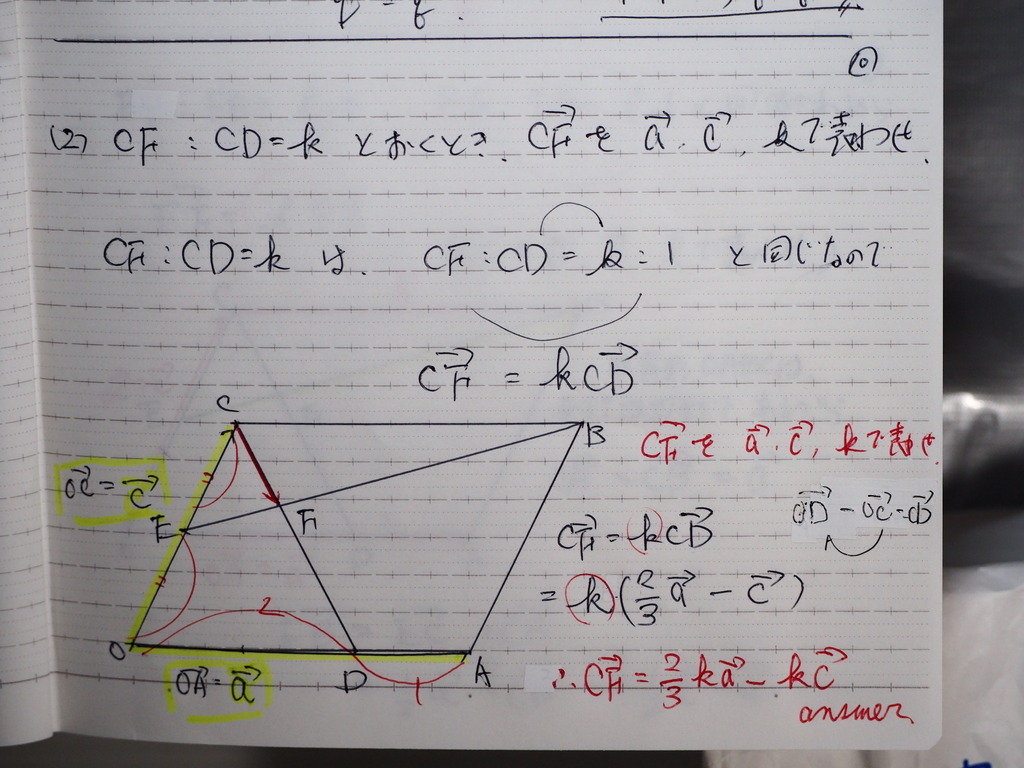 (2) CF : CD = k とおくとき、CF→を a→, c→, kで表わせ.
CF : CD = k は、 CF : CD = k : 1 と同じなので
CF→ = kCD→
C
B
OC→ = c→
E
F
O
2
OA→ = a→
D
1
A
CF→を a→, c→, kで表せ
CF→ = kCD→
OD→ - OC→ = CD→
= k(2/3 a→ - c→)
∴ CF→ = 2/3 ka→ - kc→
answer